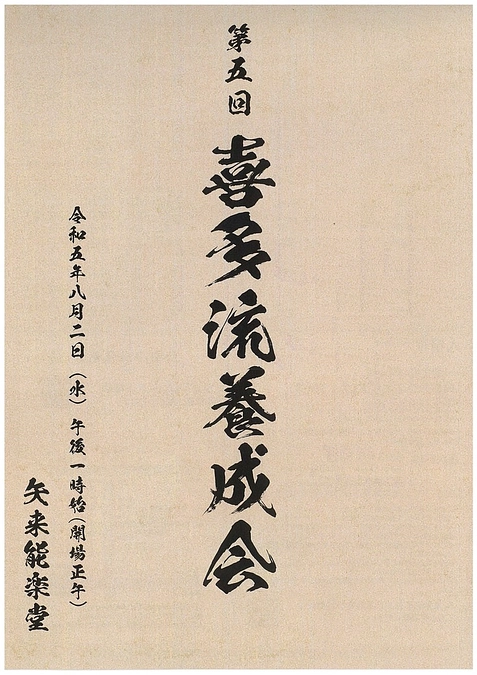 第五回 喜多流養成会
令和五年八月二日（水）午後一時始（開場正午）
矢来能楽堂